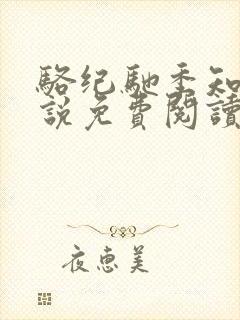 駱紀馳季知
說免費閱讀
夜惠美